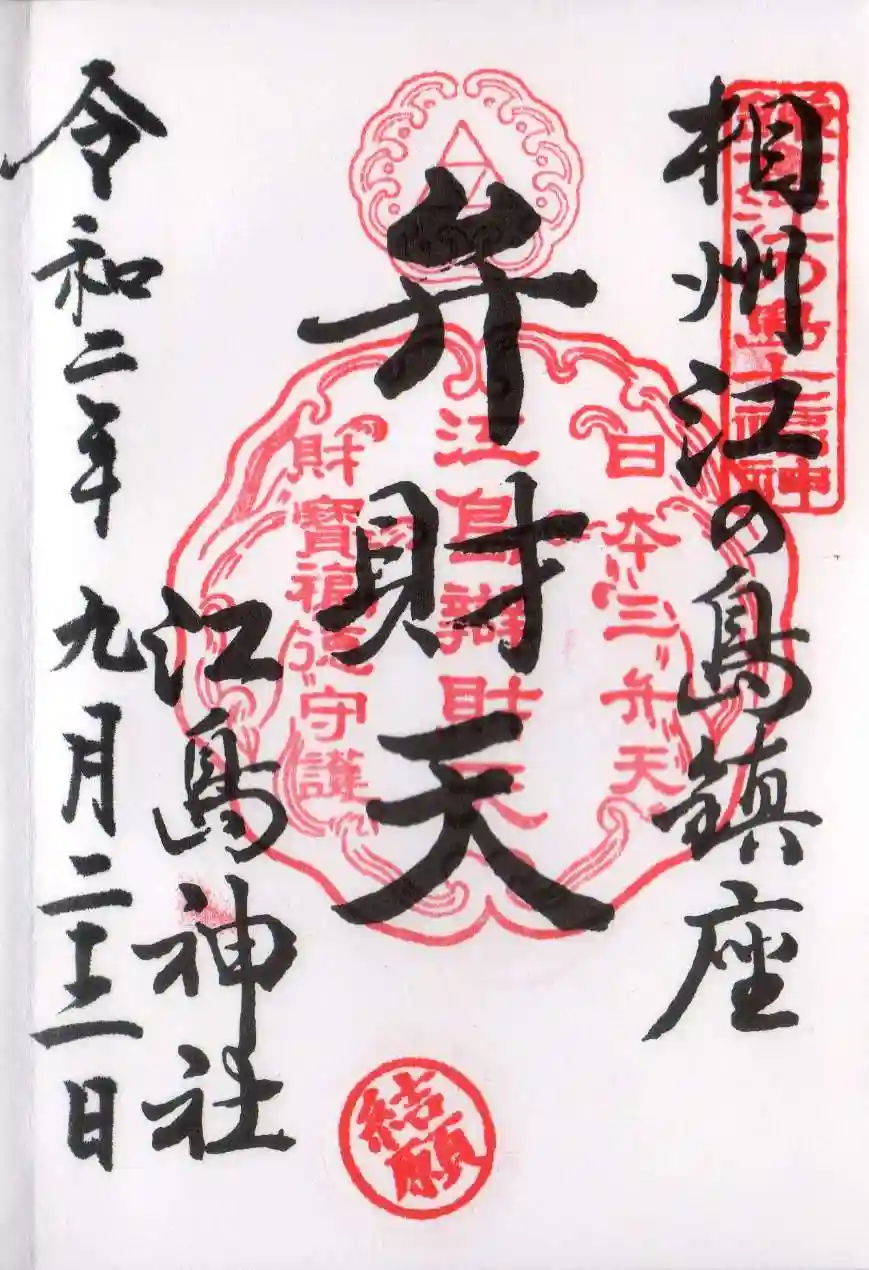 相州江の島鎮座
弁財天
江島神社
令和二年九月二十二日
鎌倉江の島七福神
日本三弁天
江島辨財天
財寶福徳守護
結願